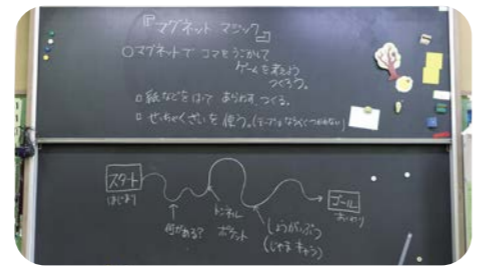 『マグネット マジック』
○マグネットで コマをうごかして
ゲームを考えよう
つくろう。
□紙などをはって あらわす、つくる。
□せっちゃくざいを使う。(テープはなるべくつかわない)
スタート
はじまり
何がある?
トンネル
ポケット
しょうがいぶつ
(じゃまキャラ)
ゴール
おわり